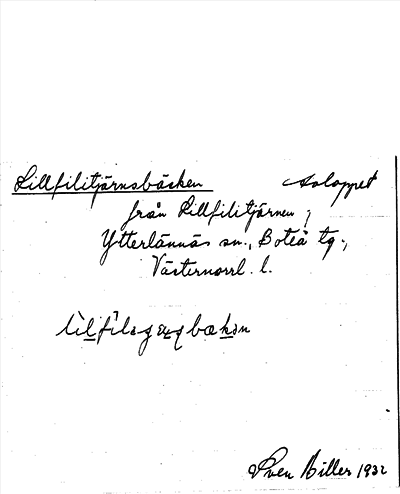 Lillfilitjärnsbäcken Avloppet
från Lillfilitjärnen,
Ytterlännäs sn., Boteå tg.,
Västernorrl. l.
Sven Hiller 1932